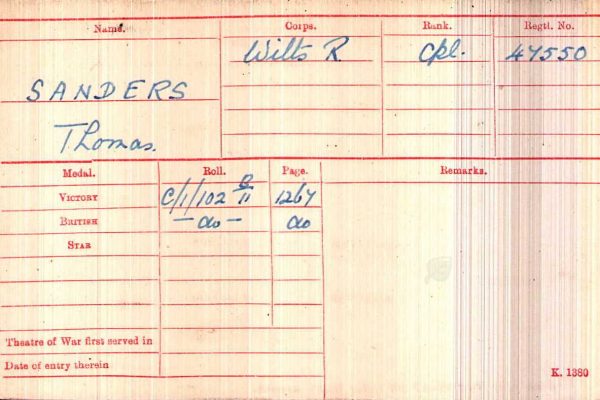 Name. Corps. Rank. Regtl. No.
Wilts R. Cpl. 47550
SANDERS
Thomas.
Medal. Roll. Page. Remarks.
VICTORY C/1/102 B 11 1267
BRITISH — do — do
STAR
Theatre of War first served in
Date of entry therein
K. 1380